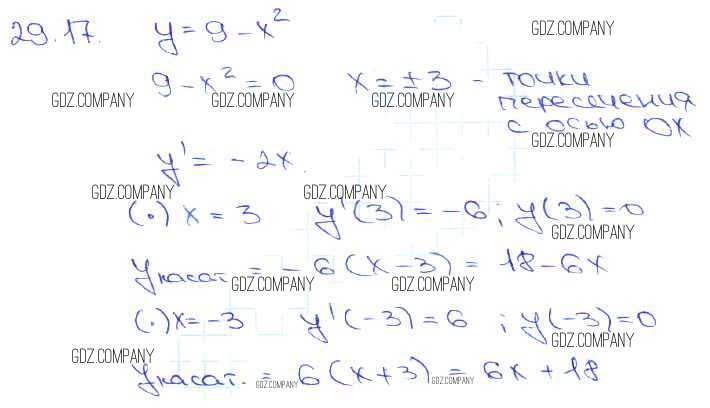 29.17. y = 9 - x² GDZ.COMPANY
9 - x² = 0 x = ± 3 - точки
GDZ.COMPANY GDZ.COMPANY GDZ.COMPANY пересечения
с осью OX
GDZ.COMPANY
y' = - 2x.
GDZ.COMPANY GDZ.COMPANY
(·) x = 3 y'(3) = -6; y(3) = 0
GDZ.COMPANY
Yкасат. = - 6 (x - 3) = 18 - 6x
GDZ.COMPANY GDZ.COMPANY
(·) x = -3 y'(-3) = 6 ; y(-3) = 0
GDZ.COMPANY
GDZ.COMPANY
Yкасат. = 6 (x + 3) = 6x + 18
GDZ.COMPANY GDZ.COMPANY